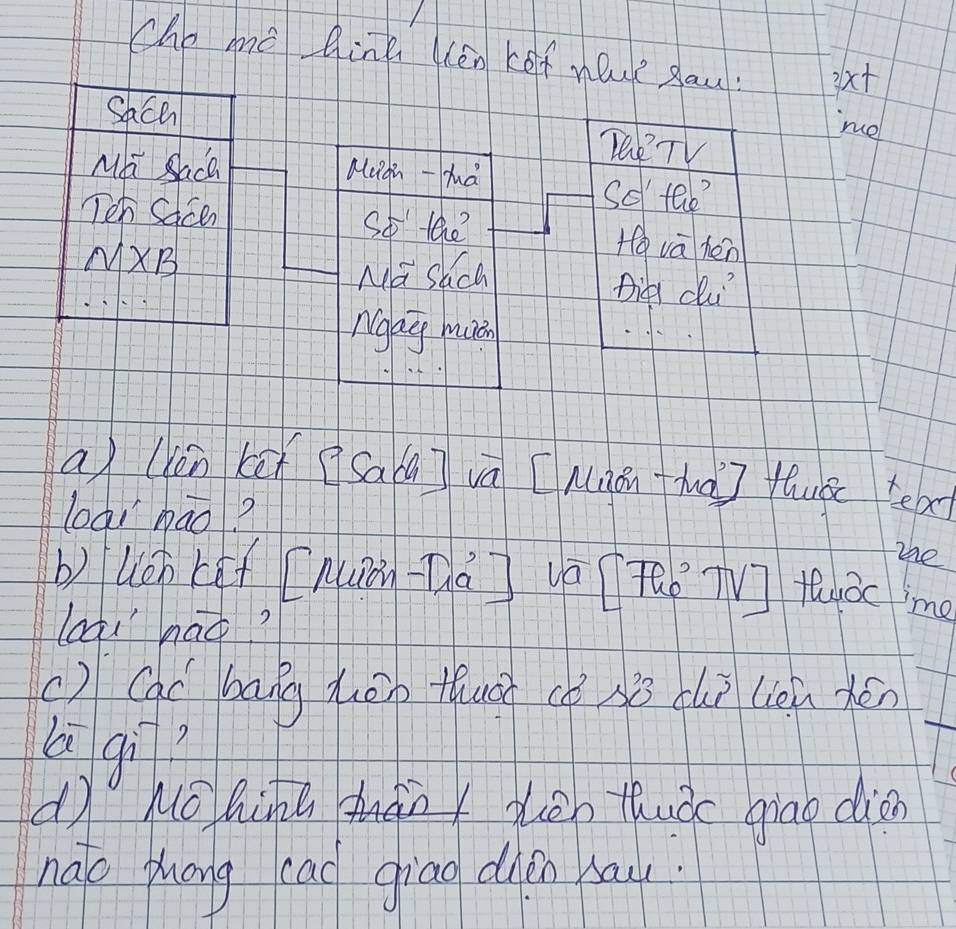 Cho mô hình liên kết như sau:
Sách
Mã Sách
Tên Sách
NXB
....
Mượn - trả
Số thẻ
Mã Sách
Ngày mượn
....
Thẻ TV
Số thẻ
Họ và tên
Địa chỉ
....
a) liên kết [Sách] và [Mượn - trả] thuộc
loại nào?
b) liên kết [Mượn-Trả] và [Thẻ TV] thuộc
loại nào?
c) Các bảng trên thuộc cơ sở dữ liệu tên
là gì?
d) Mô hình trên thuộc giao diện
nào trong các giao diện sau.
ext
ime
text
ime